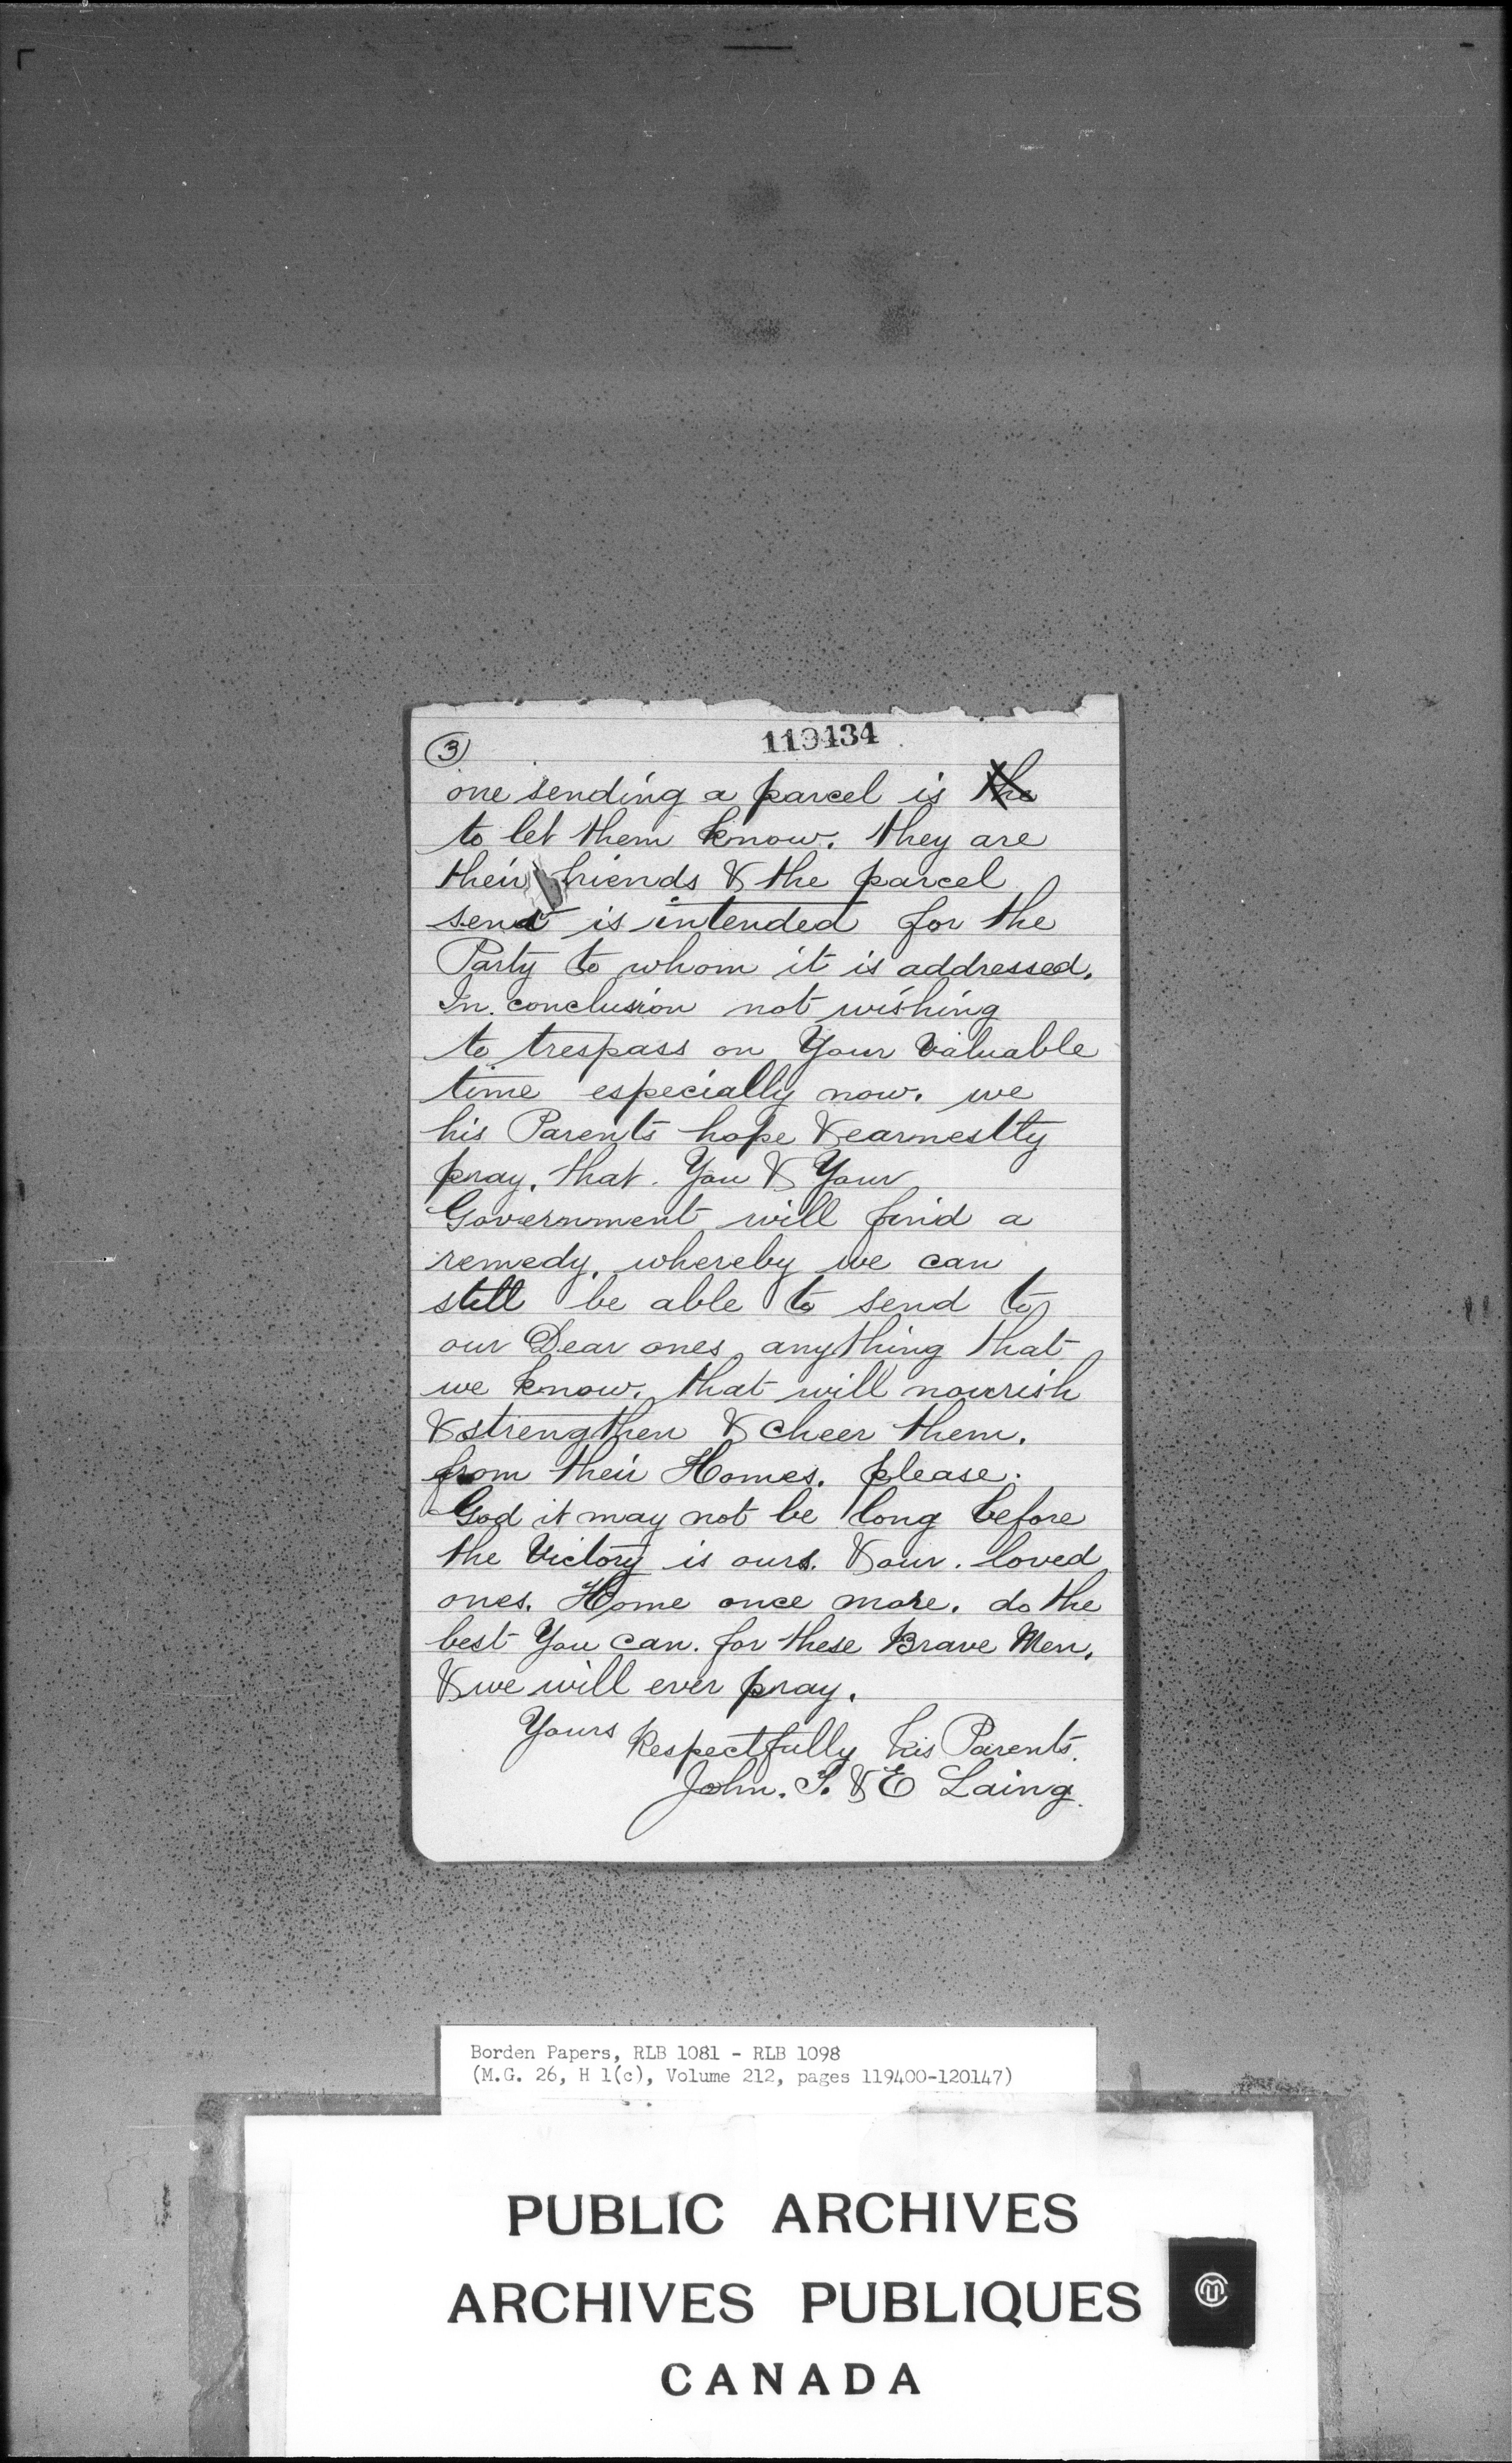 3
119434
one sending a parcel is the
to let them know. they are
their friends & the parcel
send is intended for the
Party to whom it is addressed.
In conclusion not wishing
to trespass on Your Valuable
time especially now. we
his Parents hope & earnestly
pray. that. You & Your
Government will find a
remedy. whereby we can
still be able to send to
our Dear ones anything that
we know. that will nourish
& strengthen & cheer them.
from their Homes. please.
God it may not be long before
the Victory is ours. & our. loved
ones. Home once more. do the
best You can. for these Brave Men.
& we will ever pray.
Yours Respectfully his Parents.
John. S. & E Laing.
Borden Papers, RLB 1081 - RLB 1098
(M.G. 26, H 1(c), Volume 212, pages 119400-120147)
PUBLIC ARCHIVES
ARCHIVES PUBLIQUES
CANADA